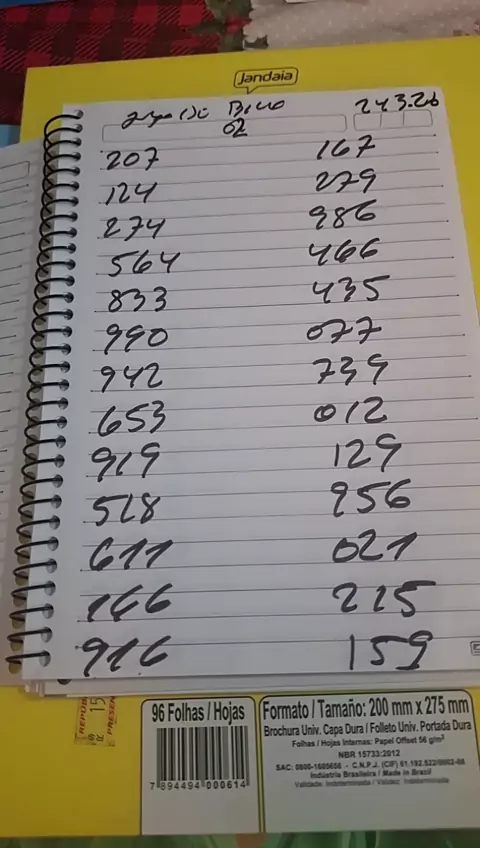 Jandaia
Bicho 243.26
02
207 167
124 279
274 986
564 466
833 435
990 077
942 739
653 012
919 129
518 956
611 021
166 215
916 159
96 Folhas / Hojas
7 894494 000614
Formato / Tamaño: 200 mm x 275 mm
Brochura Univ. Capa Dura / Folleto Univ. Portada Dura
Folhas / Hojas Internas: Papel Offset 56 g/m²
NBR 15733:2012
Indústria Brasileira / Made in Brazil
Validade: Indeterminada / Validez: Indeterminada